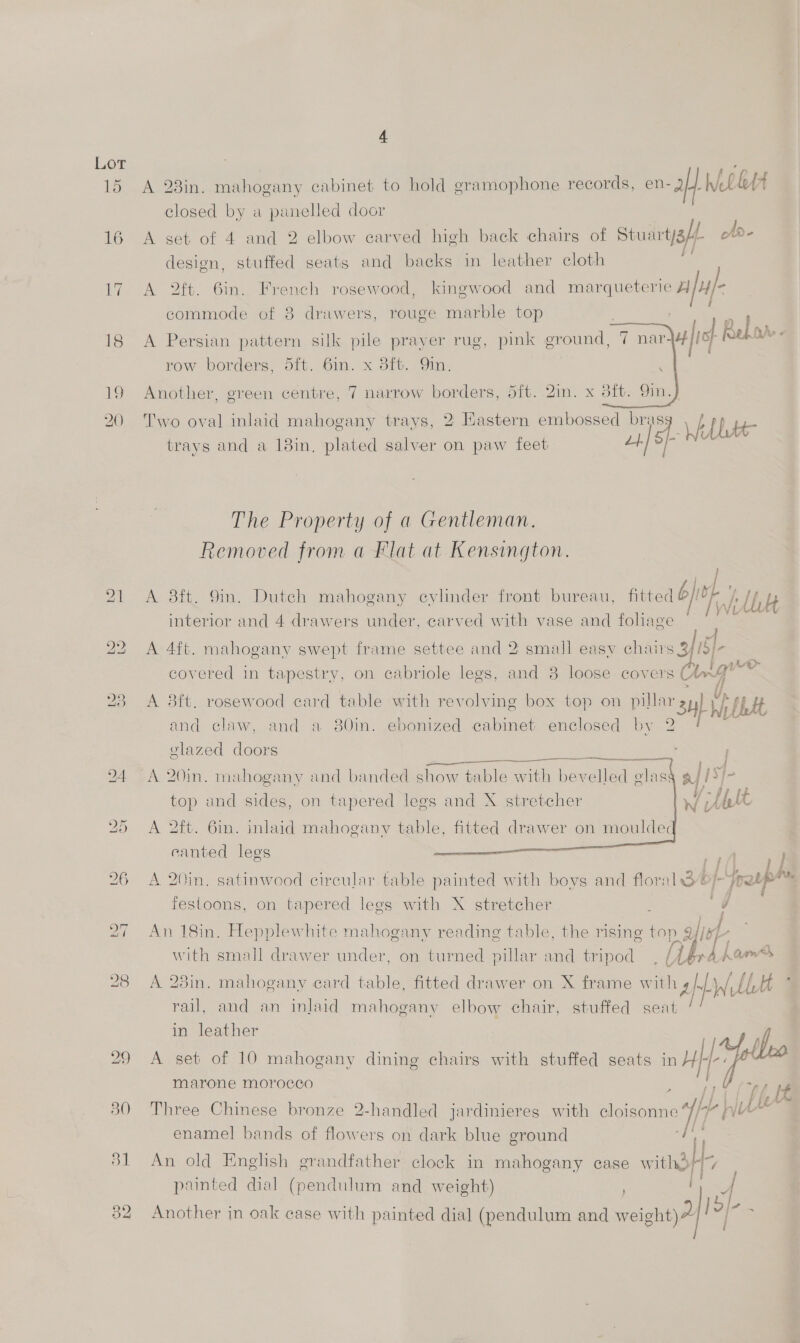 4
Lot
15 A 23in. mahogany cabinet to hold gramophone records, en- 2/-/- Willett
closed by a panelled door
16 A set of 4 and 2 elbow carved high back chairs of Stuart 3/-/- do-
design, stuffed seats and backs in leather cloth
17 A 2ft. 6in. French rosewood, kingwood and marqueterie 4/4/-
commode of 3 drawers, rouge marble top
18 A Persian pattern silk pile prayer rug, pink ground, 7 nar- 4/10/-
row borders, 5ft. 6in. x 3ft. 9in.
19 Another, green centre, 7 narrow borders, 5ft. 2in. x 3ft. 9in.
20 Two oval inlaid mahogany trays, 2 Eastern embossed brass
trays and a 13in. plated salver on paw feet 4/5/- Willett
The Property of a Gentleman.
Removed from a Flat at Kensington.
21 A 3ft. 9in. Dutch mahogany cylinder front bureau, fitted 6/10/- Willett
interior and 4 drawers under, carved with vase and foliage
22 A 4ft. mahogany swept frame settee and 2 small easy chairs 3/15/-
covered in tapestry, on cabriole legs, and 3 loose covers
23 A 3ft. rosewood card table with revolving box top on pillar 34/- Willett
and claw, and a 30in. ebonized cabinet enclosed by 2
glazed doors
24 A 20in. mahogany and banded show table with bevelled glass 2/15/-
top and sides, on tapered legs and X stretcher Willett
25 A 2ft. 6in. inlaid mahogany table, fitted drawer on moulded
canted legs
26 A 20in. satinwood circular table painted with boys and floral
festoons, on tapered legs with X stretcher
27 An 18in. Hepplewhite mahogany reading table, the rising top 2/10/-
with small drawer under, on turned pillar and tripod Abrahams
28 A 23in. mahogany card table, fitted drawer on X frame with 2/-/- Willett
rail, and an inlaid mahogany elbow chair, stuffed seat
in leather
29 A set of 10 mahogany dining chairs with stuffed seats in 4/-/-
marone morocco
30 Three Chinese bronze 2-handled jardinieres with cloisonne 4/-/- Willett
enamel bands of flowers on dark blue ground
31 An old English grandfather clock in mahogany case with 3/-/-
painted dial (pendulum and weight)
32 Another in oak case with painted dial (pendulum and weight) 2/15/-